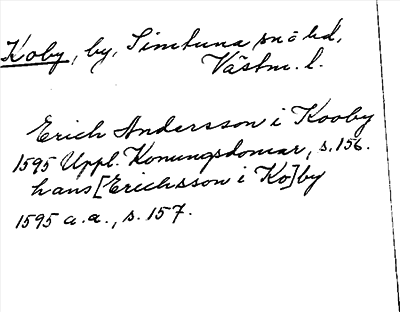 Koby, by, Simtuna sn ö hd,
Västm. l.
Erich Andersson i Kooby
1595 Uppl. Konungsdomar, s. 156.
hans [Erichsson i Ko]by
1595 a. a., s. 157.